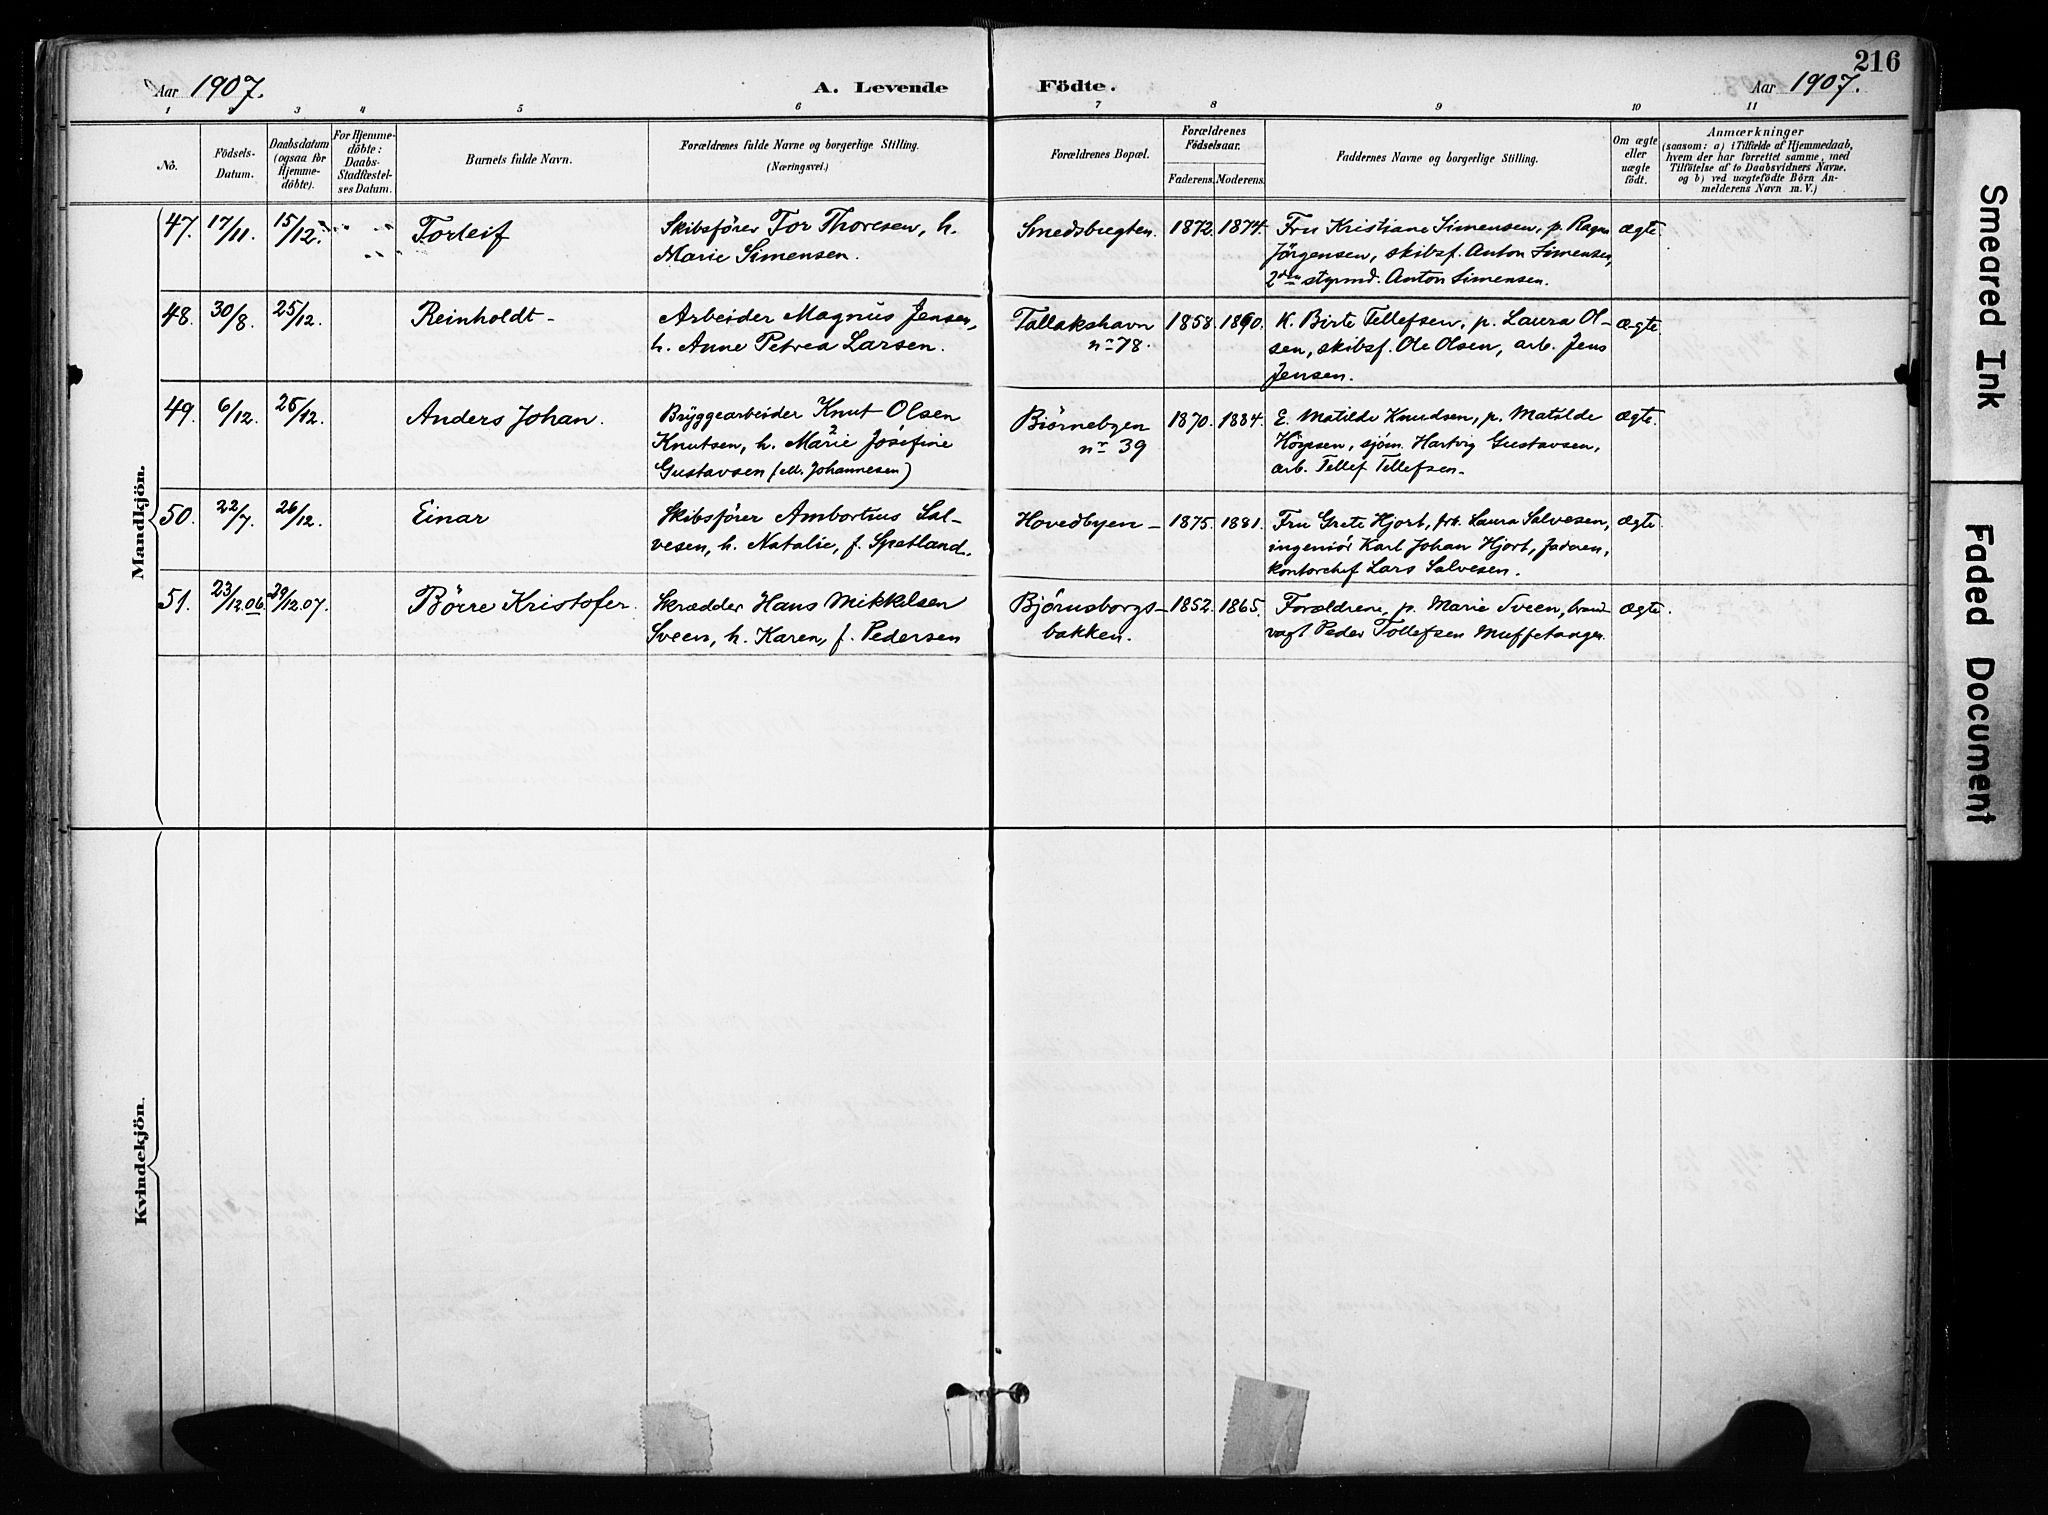 216
Aar 1907.
A. Levende Födte.
Aar 1907.
1 2 3 4 5 6 7 8 9 10 11
No.
Födsels-
Datum.
Daabsdatum
(ogsaa for
Hjemme-
döbte).
For Hjemme-
döbte:
Daabs-
Stadfæstel-
ses Datum.
Barnets fulde Navn.
Forældrenes fulde Navne og borgerlige Stilling.
(Næringsvei.)
Forældrenes Bopæl.
Forældrenes
Födselsaar.
Faderens. Moderens.
Faddernes Navne og borgerlige Stilling.
Om ægte
eller
uægte
födt.
Anmærkninger
(saasom: a) i Tilfælde af Hjemmedaab,
hvem der har forrettet samme, med
Tilföielse af to Daabsvidners Navne,
og b) ved uægtefödte Börn An-
melderens Navn m. V.)
Mandkjön.
47. 17/11. 15/12. Torleif
Skibsfører Tor Thoresen, h.
Marie Simensen.
Smedsbugten. 1872. 1874.
Fru Kristiane Simensen, p. Ragna
Jörgensen, skibsf. Anton Simensen,
2den styrmd. Anton Simensen.
ægte.
48. 30/8. 25/12. Reinholdt-
Arbeider Magnus Jensen,
h. Anne Petrea Larsen.
Tallakshavn
no 78.
1858. 1860.
K. Birte Tellefsen, p. Laura Ol-
sen, skibsf. Ole Olsen, arb. Jens
Jensen.
ægte.
49. 6/12. 26/12. Anders Johan.
Bryggearbeider Knut Olsen
Knutsen, h. Marie Josefine
Gustavsen (ell. Johannesen)
Biörnebyen
no 39
1870. 1884.
E. Matilde Knudsen, p. Matilde
sjöm. Hartvig Gustavsen,
arb. Tellef Tellefsen.
ægte.
50. 22/7. 26/12. Einar
Skibsfører Ambortius Sal-
vesen, h. Natalie, f. Spetland.
Hovedbyen- 1875. 1881.
Fru Grete Hjort, frk. Laura Salvesen,
ingeniör Karl Johan Hjort, faderen,
kontorchef Lars Salvesen.
ægte.
51. 23/12.06. 29/12.07. Börre Kristofer.
Skrædder Hans Mikkelsen
Sveen, h. Karen, f. Pedersen
Bjørnsborgs-
bakken.
1852. 1865.
Forældrene, p. Marie Sveen, brand-
vagt Peder Tollefsen Muffetangen.
ægte.
Kvindekjön.
Smeared Ink
Faded Document